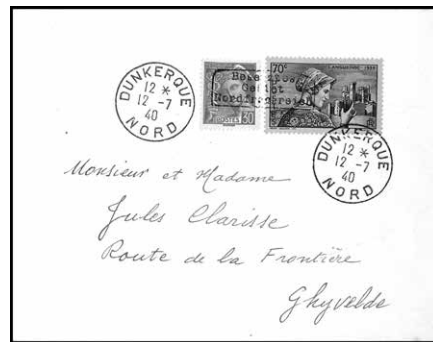 DUNKERQUE
12 *
12 -7
40
NORD
Besetztes
Gebiet
Nordfrankreich
POSTES 30
70c
DUNKERQUE
12 *
12 -7
40
NORD
Monsieur et Madame
Jules Clarisse
Route de la Frontière
Ghyvelde